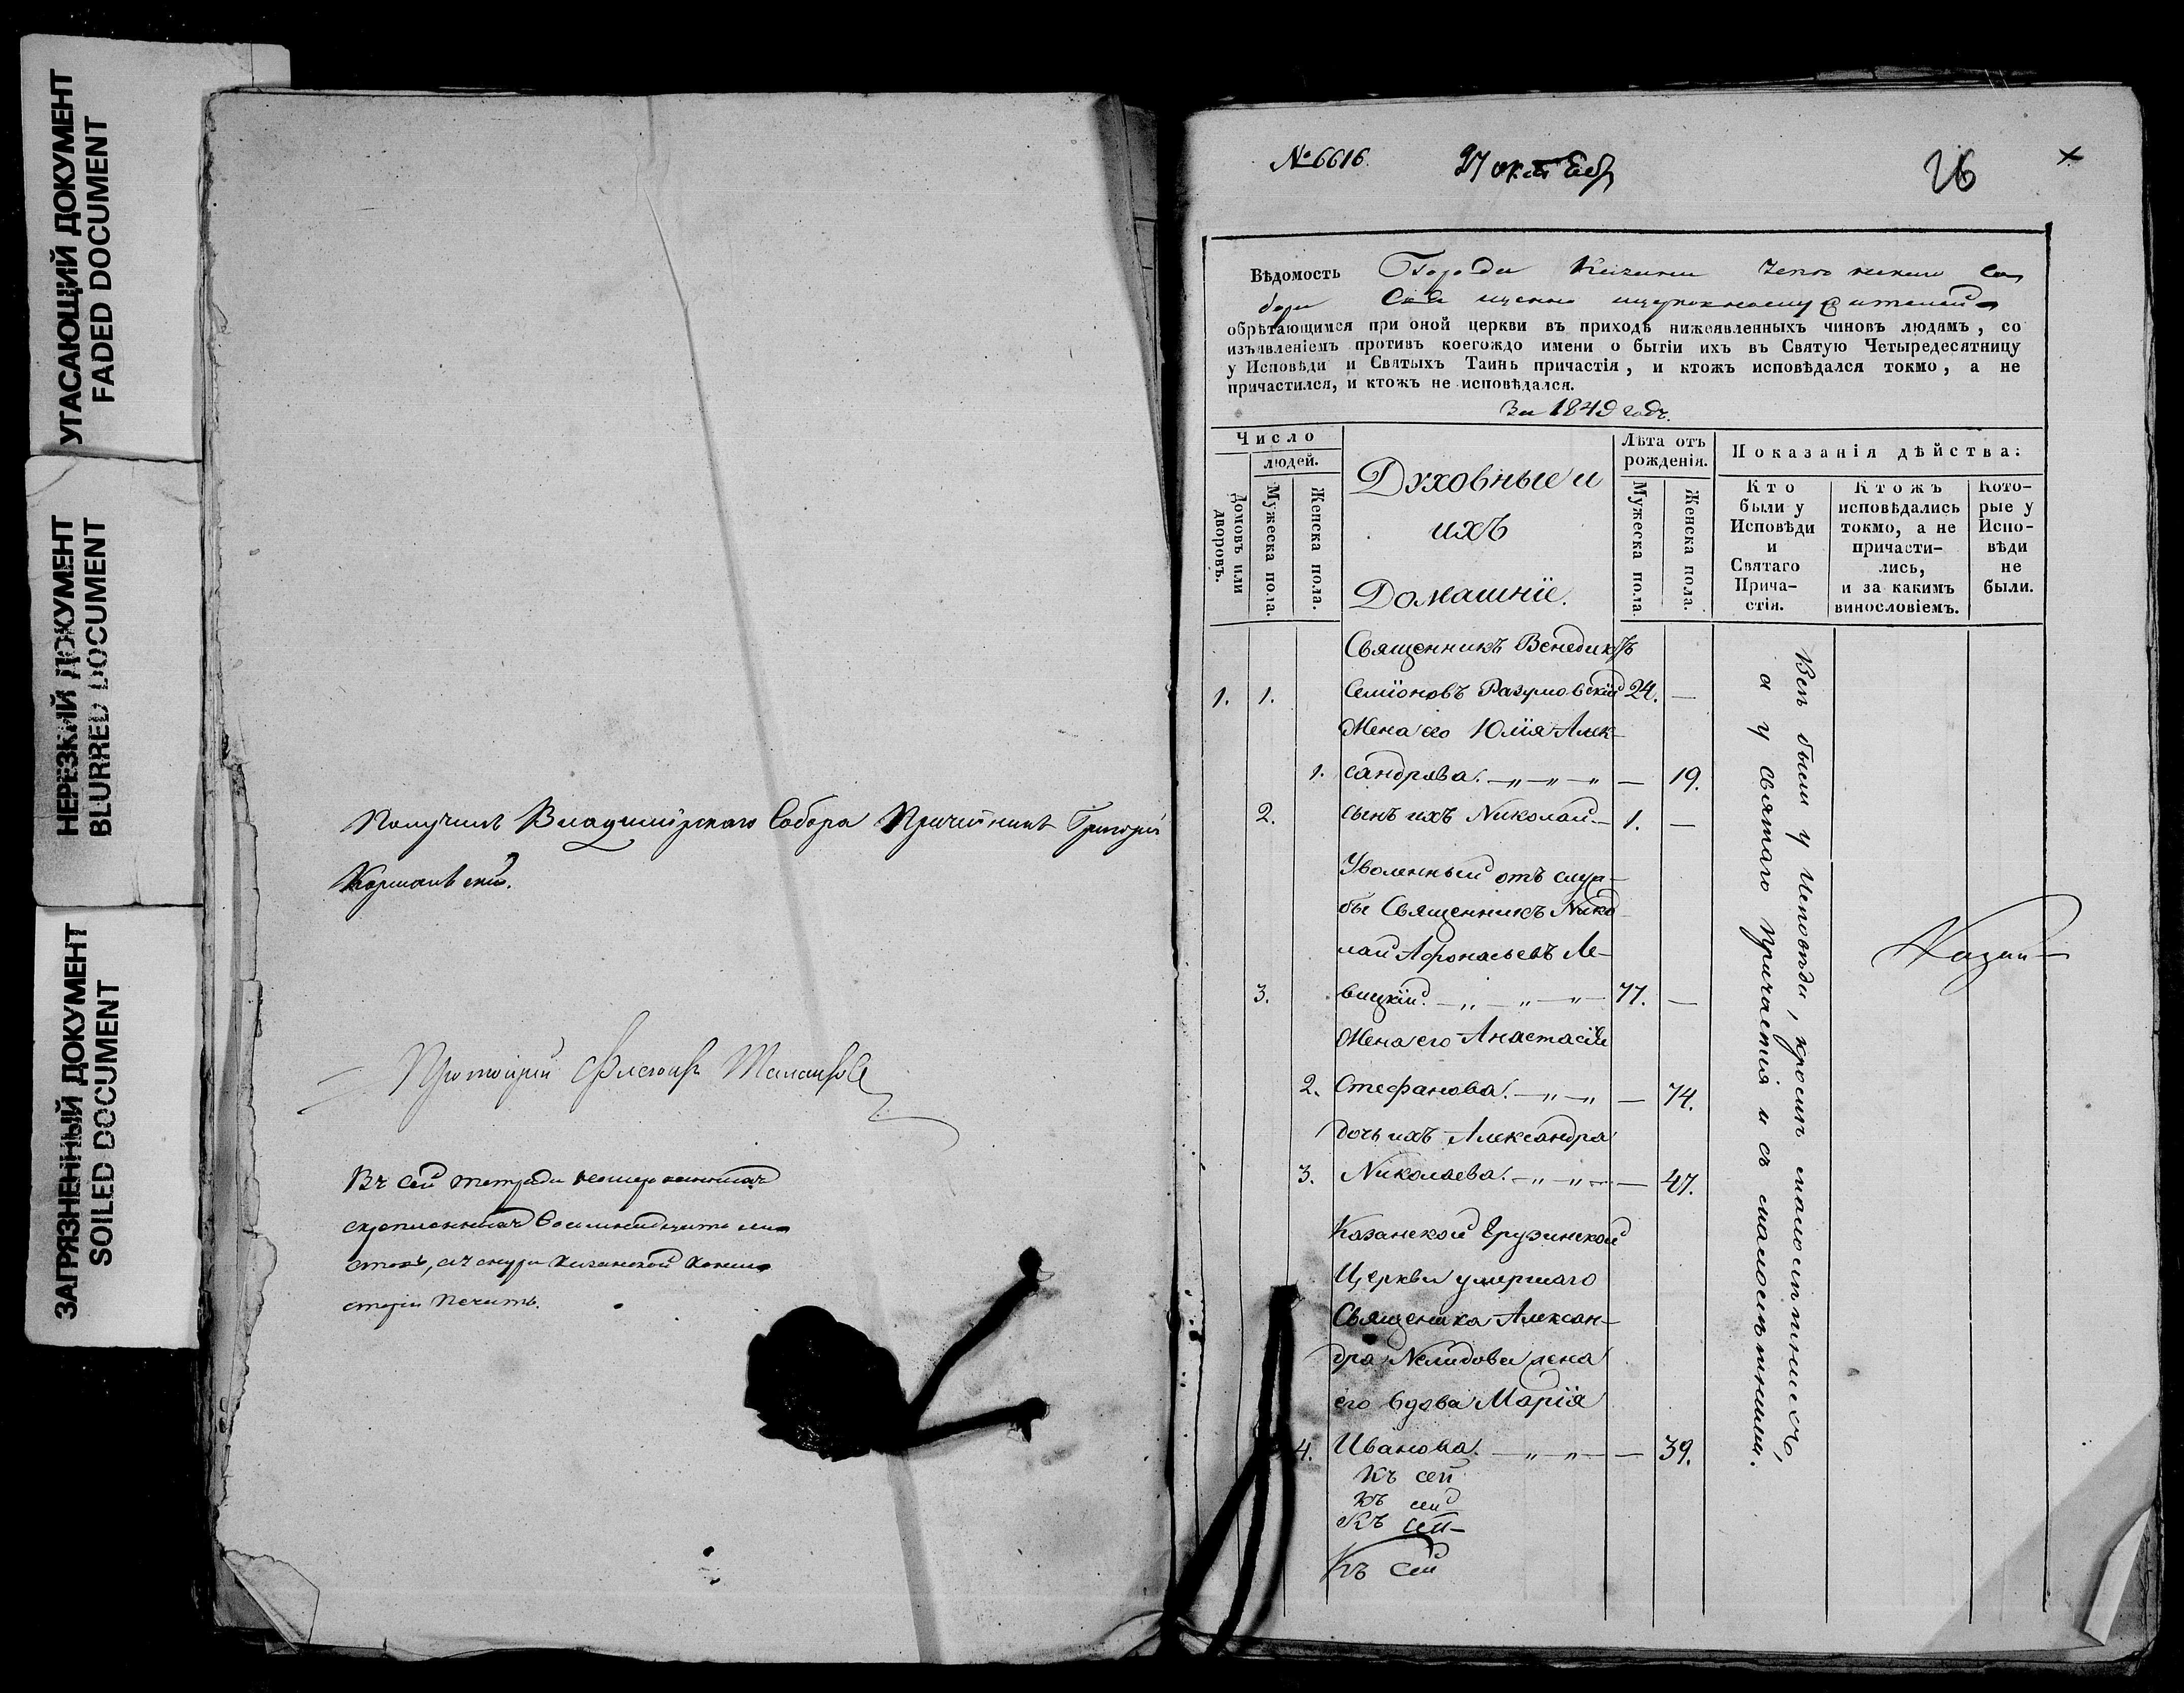 УГАСАЮЩИЙ ДОКУМЕНТ
FADED DOCUMENT
НЕРЕЗКИЙ ДОКУМЕНТ
BLURRED DOCUMENT
ЗАГРЯЗНЕННЫЙ ДОКУМЕНТ
SOILED DOCUMENT
Получилъ Владимірскаго Собора Григорій
Протоіерей
Въ сей тетради
печать.
№ 6616.
26
×
Вѣдомость Города Казани
обрѣтающимся при оной церкви въ приходѣ нижеявленныхъ чиновъ людямъ, со
изъявленіемъ противъ коегождо имени о бытіи ихъ въ Святую Четыредесятницу
у Исповѣди и Святыхъ Таинъ причастія, и ктожъ исповѣдался токмо, а не
причастился, и ктожъ не исповѣдался.
За 1849 годъ.
Число
людей.
Домовъ или дворовъ.
Мужеска пола.
Женска пола.
Духовные и
ихъ
Домашніе.
Лѣта отъ
рожденія.
Мужеска пола.
Женска пола.
Показанія дѣйства:
Кто
были у
Исповѣди
и
Святаго
Прича-
стія.
Ктожъ
исповѣдались
токмо, а не
причасти-
лись,
и за какимъ
винословіемъ.
Кото-
рые у
Испо-
вѣди
не
были.
Священникъ Венедиктъ
1. 1. Семіоновъ Разумовскій 24. —
Жена его Юлія Алек-
1. сандрова. — „ — „ — „ — 19.
2. сынъ ихъ Николай — 1. —
Уволенный отъ служ-
бы Священникъ Нико-
лай Афонасьевъ Ле-
3. вицкій. — „ — „ — „ — 77. —
Жена его Анастасія
2. Стефанова. — „ — „ — 74.
дочь ихъ Александра
3. Николаева. — „ — „ — — 47.
Казанской Грузинской
Церкви умершаго
Священика Алексан-
дра Нелидова жена
его вдова Марія
4. Иванова. — „ — „ — — 39.
Къ сей
Къ сей
Къ сей
Къ сей
Всѣ были у Исповѣди, кромѣ малолѣтнихъ,
а у святаго причастія и съ малолѣтними.